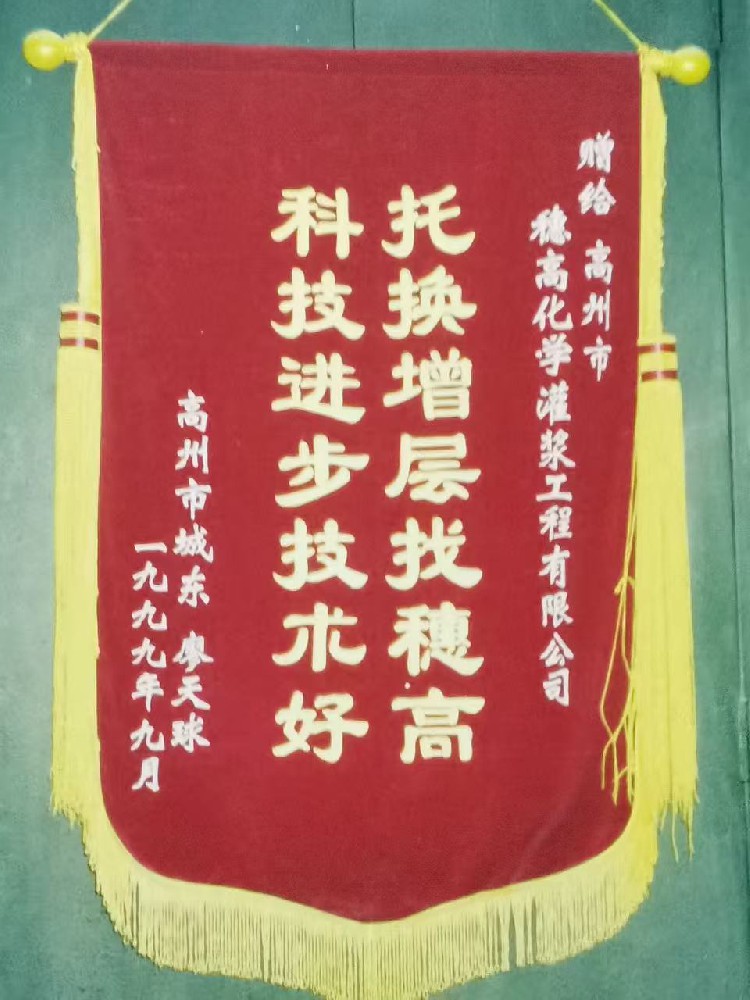 赠给 高州市
穗高化学灌浆工程有限公司
托换增层找穗高
科技进步技术好
高州市城东 廖天球
一九九九年九月